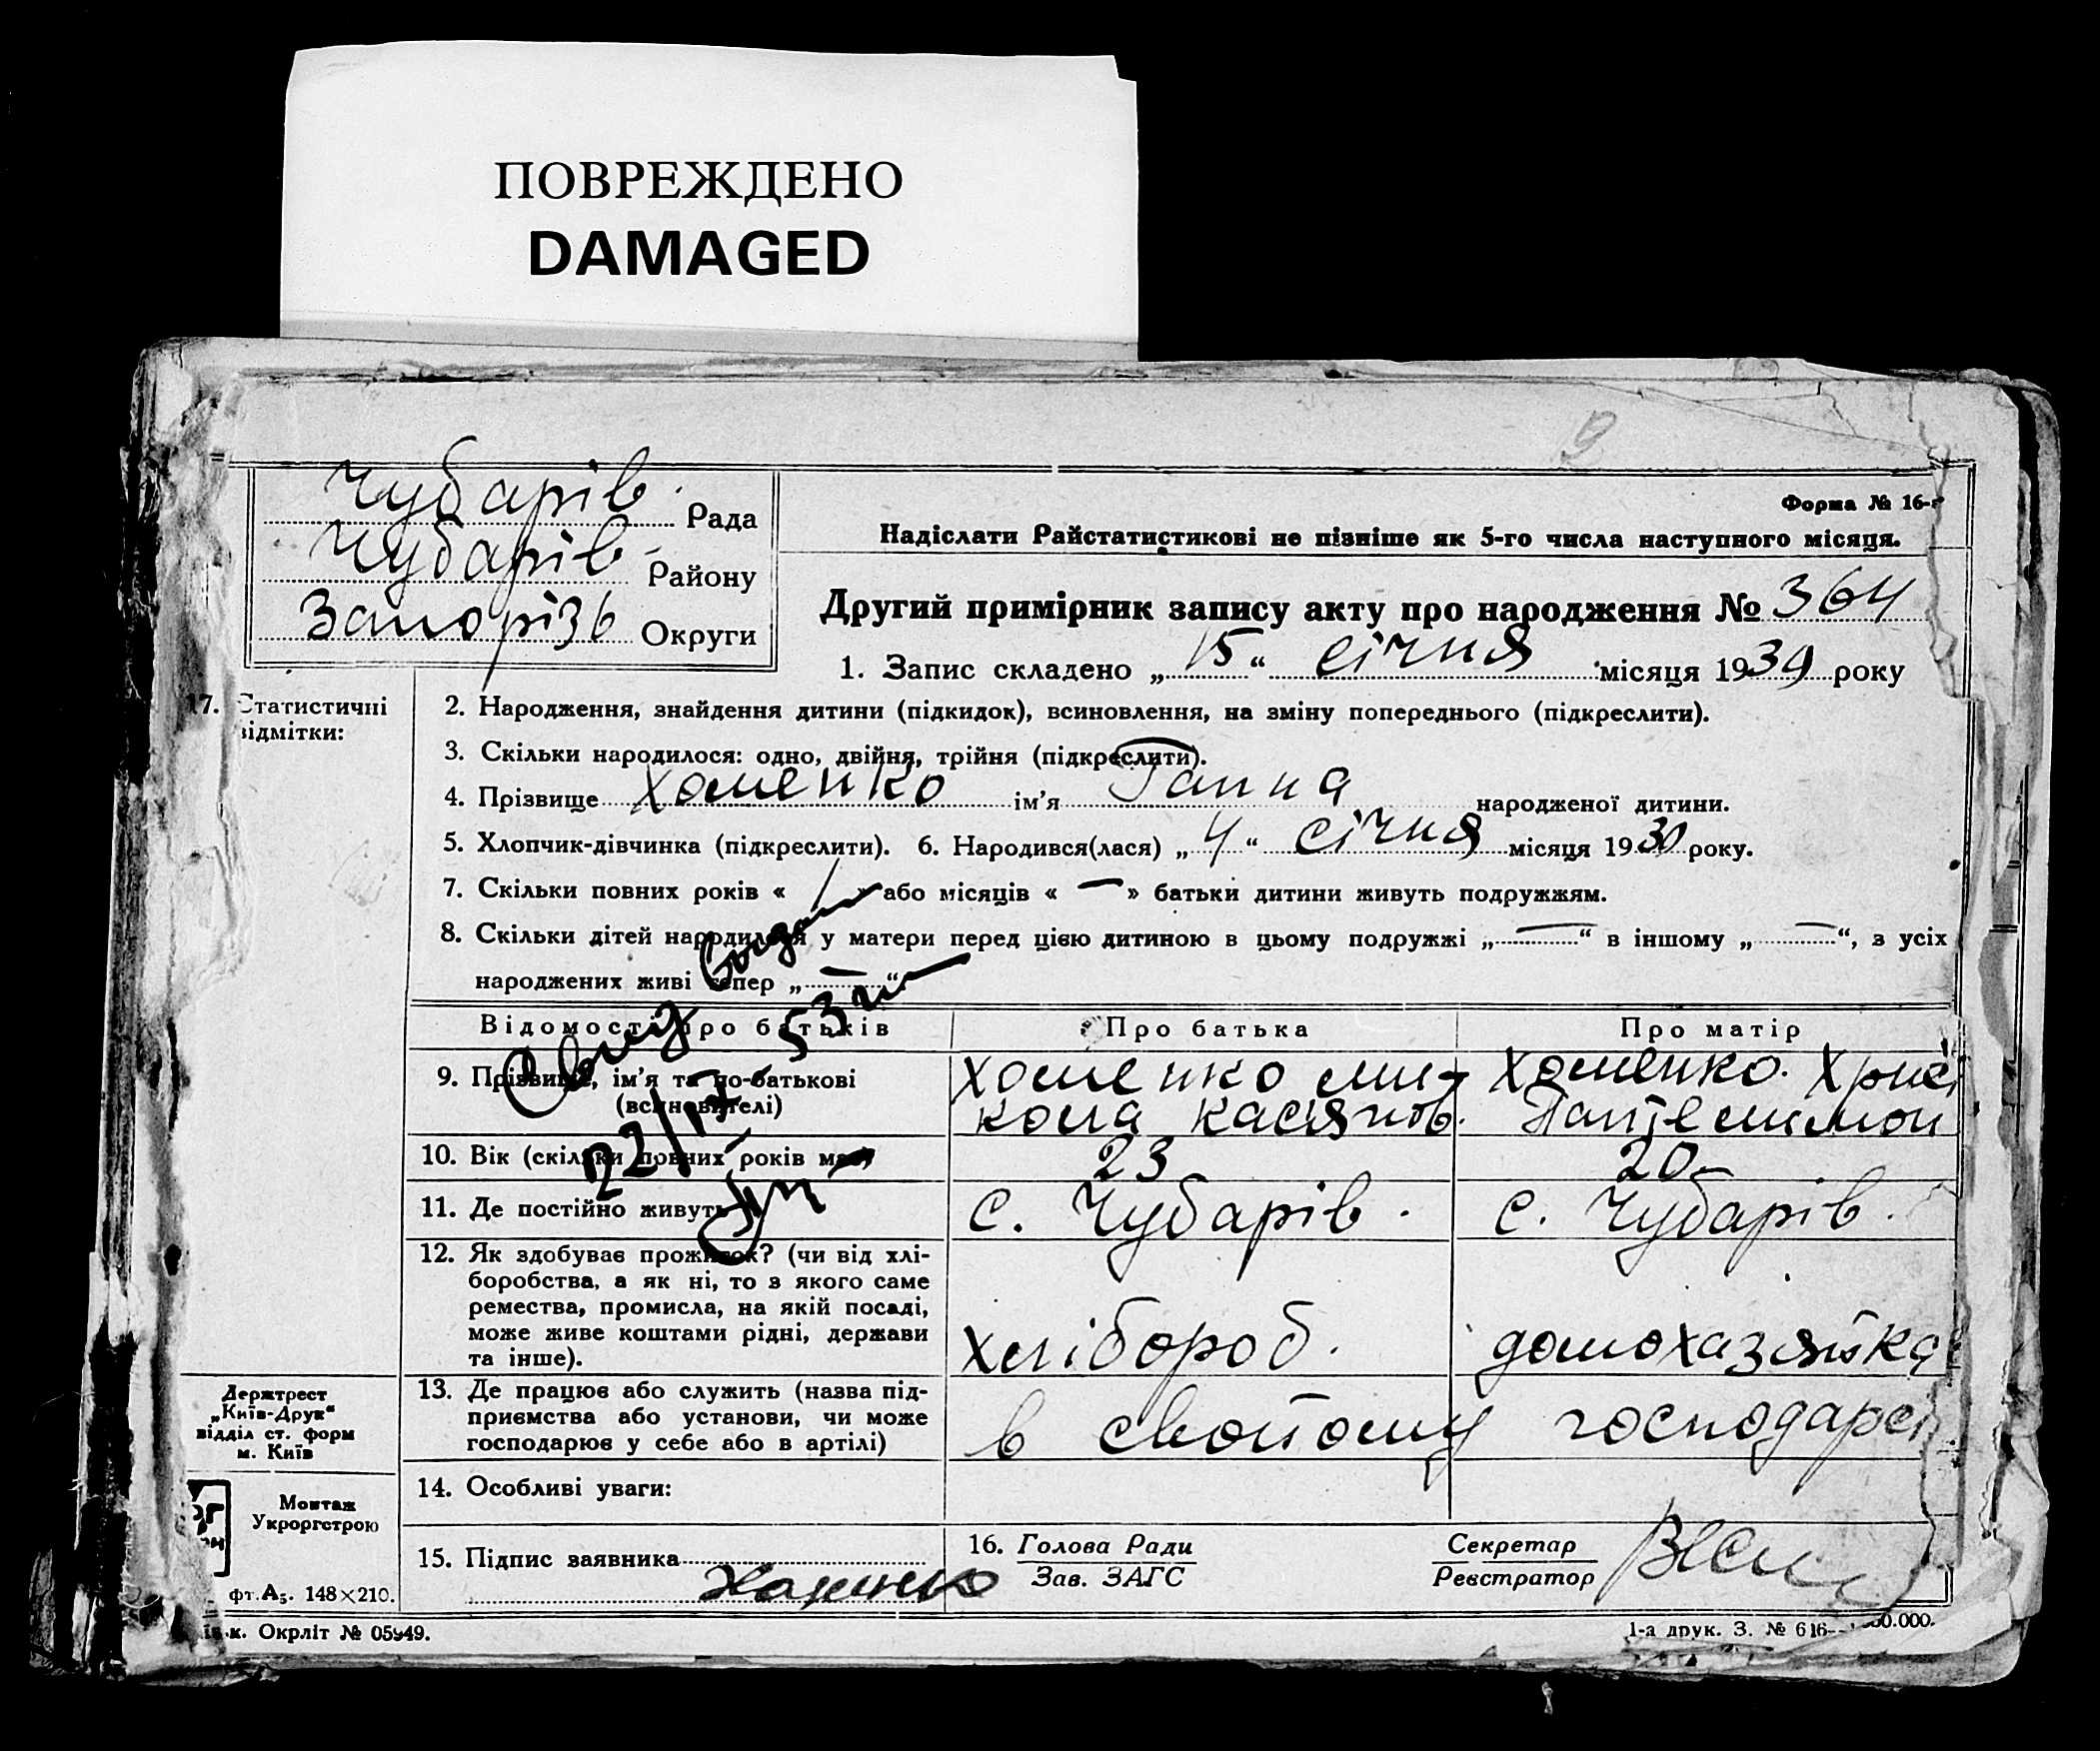 ПОВРЕЖДЕНО
DAMAGED
9
Чубарів. Рада
Чубарів- Району
Запорізь Округи
Форма № 16-
Надіслати Райстатистикові не пізніше як 5-го числа наступного місяця.
Другий примірник запису акту про народження № 364
1. Запис складено „15“ січня місяця 1930 року
17. Статистичні
відмітки:
2. Народження, знайдення дитини (підкидок), всиновлення, на зміну попереднього (підкреслити).
3. Скільки народилося: одно, двійня, трійня (підкреслити).
4. Прізвище Хоменко ім'я Ганна народженої дитини.
5. Хлопчик-дівчинка (підкреслити). 6. Народився(лася) „4“ січня місяця 1930 року.
7. Скільки повних років « 1 » або місяців « — » батьки дитини живуть подружжям.
8. Скільки дітей народилося у матери перед цією дитиною в цьому подружжі „—“ в іншому „—“, з усіх
народжених живі тепер „—“.
Відомості про батьків Про батька Про матір
9. Прізвище, ім'я та по-батькові
(всиновителі)
Хоменко Ми-
кола Касянов.
Хоменко. Хрис
Пантелимон
10. Вік (скільки повних років має) 23 20-
11. Де постійно живуть с. Чубарів. с. Чубарів.
12. Як здобуває прожиток? (чи від хлі-
боробства, а як ні, то з якого саме
ремества, промисла, на якій посаді,
може живе коштами рідні, держави
та інше).
Хлібороб. домохазяйка
13. Де працює або служить (назва під-
приємства або установи, чи може
господарює у себе або в артілі)
в свойому господарс
14. Особливі уваги:
15. Підпис заявника Хоменко
16. Голова Ради
Зав. ЗАГС
Секретар
Реєстратор
22/IV 53
Держтрест
„Київ-Друк“
відділ ст. форм
м. Київ
Монтаж
Укроргстрою
фт. А5. 148×210.
к. Окрліт № 05949.
1-а друк. З. № 616-